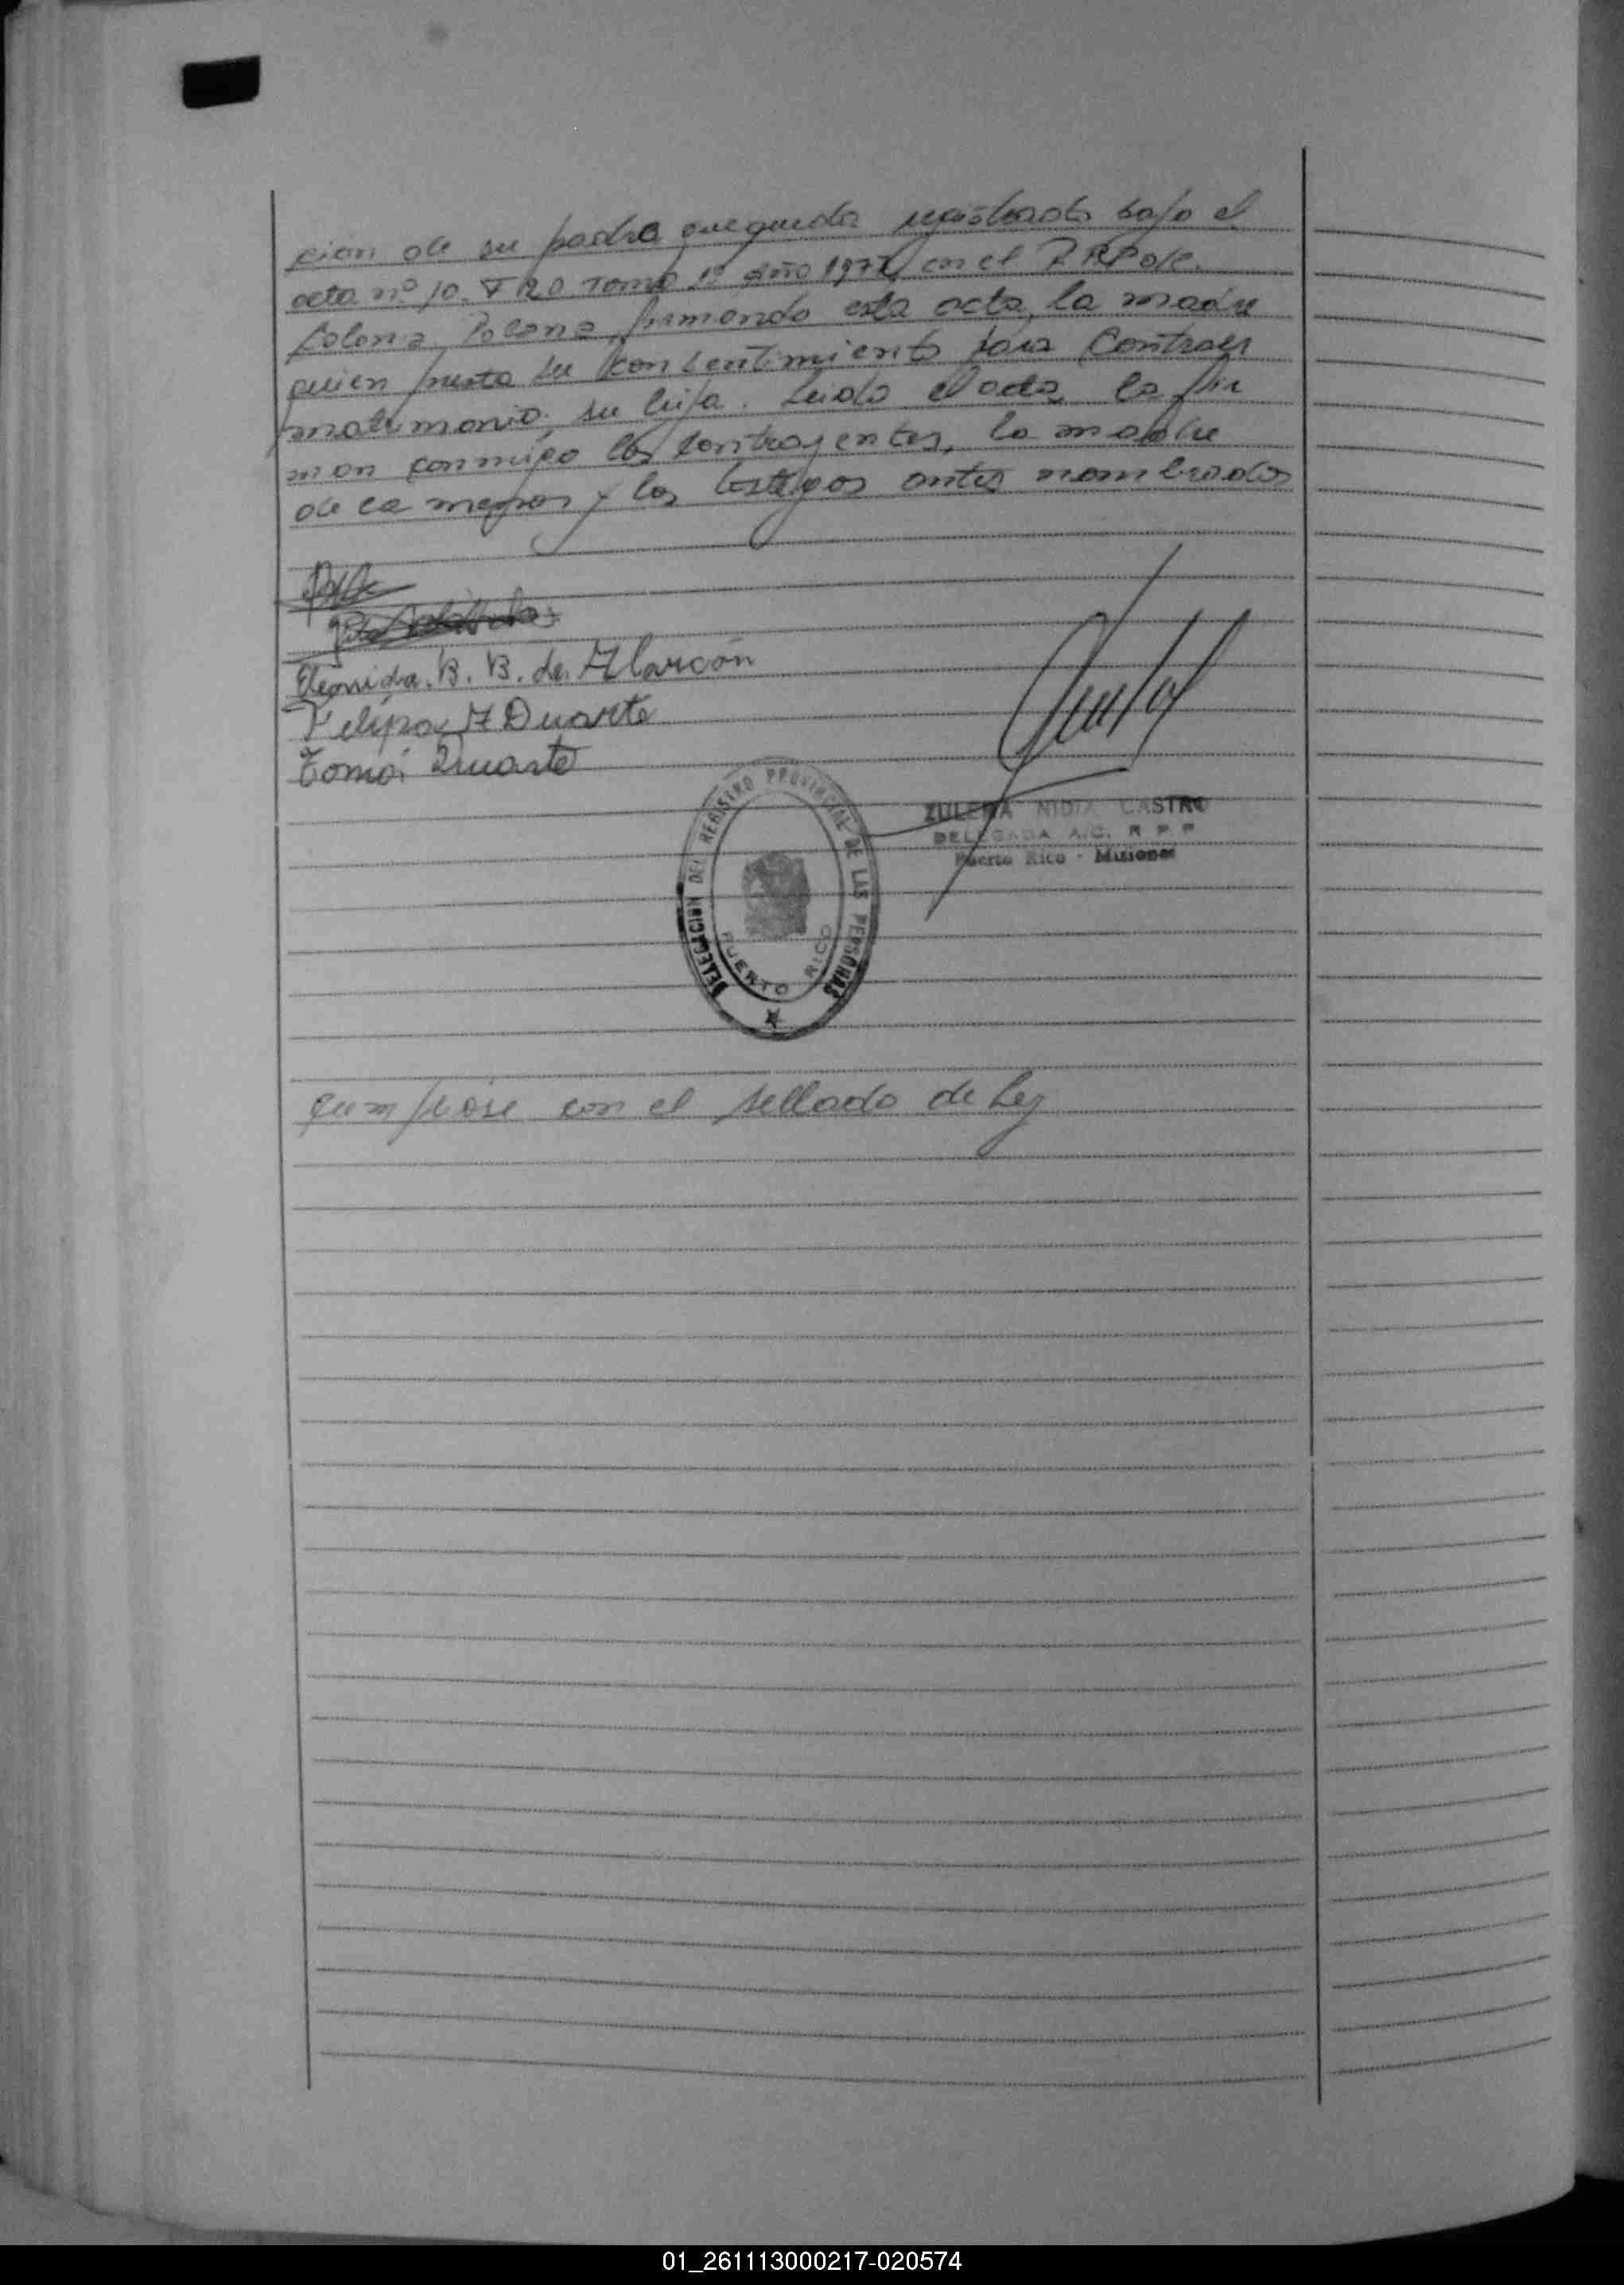 cion de su padre que queda registrada bajo el
acta nº 10. Fº 20 Tomo 1º año 1977 en el R.R.P de
Colonia Polana, firmando esta acta, la madre
quien presta su consentimiento para contraer
matrimonio, su hija. Leida el acta, la fir
man conmigo los contrayentes, la madre
de la menor y los testigos antes nombrados
B. B. de Alarcón
Felipa A Duarte
Tomás Duarte
DELEGACION DEL REGISTRO PROVINCIAL DE LAS PERSONAS
PUERTO RICO
ZULEMA NIDIA CASTRO
DELEGADA A.C. R P P
Puerto Rico - Misiones
cumpliose con el sellado de Ley
01_261113000217-020574